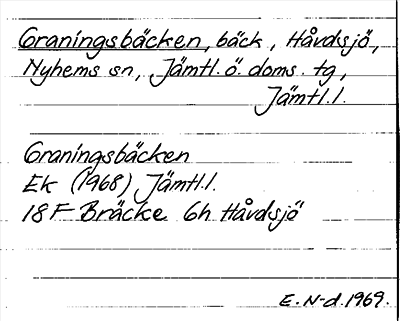 Graningsbäcken, bäck, Håvdsjö,
Nyhems sn, Jämtl. ö. doms. tg,
Jämtl.l.
Graningsbäcken
Ek (1968) Jämtl.l.
18F Bräcke 6h Håvdsjö
E. N-d. 1969.